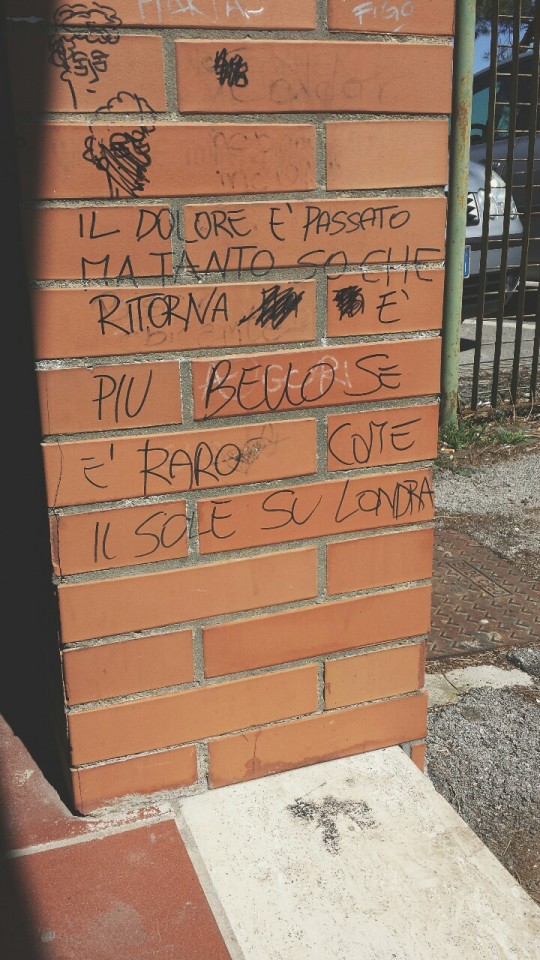 FIGO
IL DOLORE E' PASSATO
MA TANTO SO CHE
RITORNA È
PIU BELLO SE
E' RARO COME
IL SOLE SU LONDRA